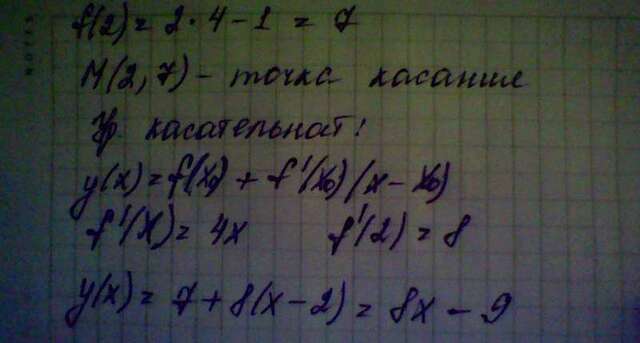 f(2) = 2 · 4 - 1 = 7
M(2, 7) - точка касание
Ур касательнат!
y(x) = f(x₀) + f'(x₀)(x - x₀)
f'(x) = 4x f'(2) = 8
y(x) = 7 + 8(x - 2) = 8x - 9